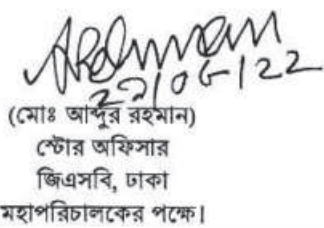 ARahman
22/06/22
(মোঃ আব্দুর রহমান)
স্টোর অফিসার
জিএসবি, ঢাকা
মহাপরিচালকের পক্ষে।